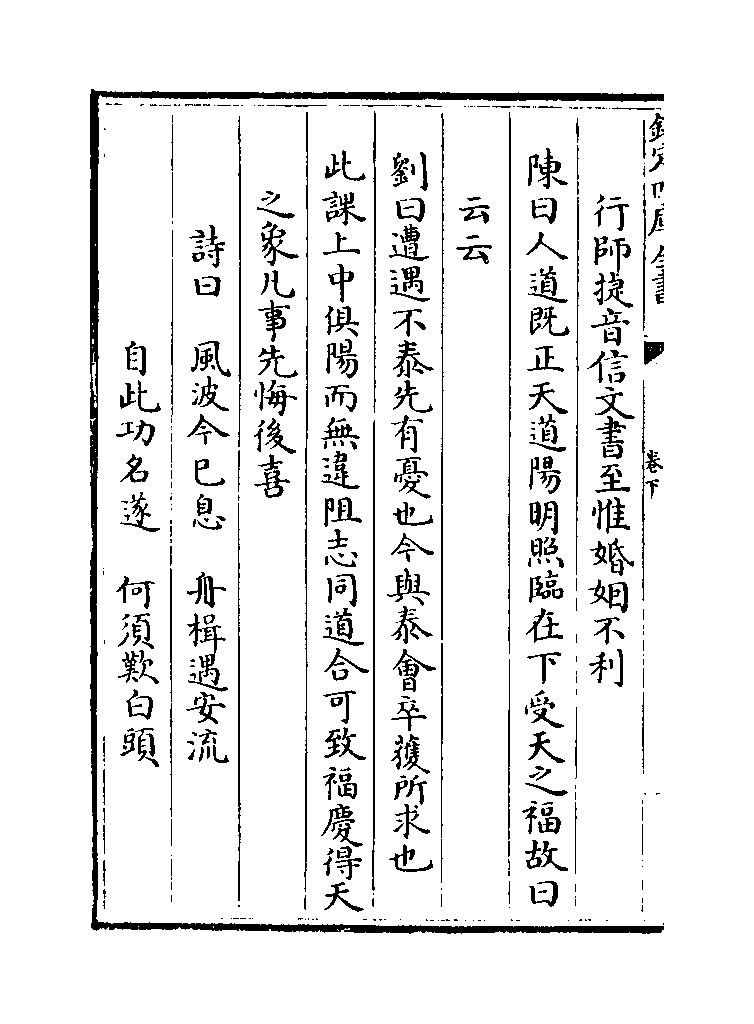 欽定四庫全書
卷下
行師捷音信文書至惟婚姻不利
陳曰人道既正天道陽明照臨在下受天之福故曰
云云
劉曰遭遇不泰先有憂也今與泰會卒獲所求也
此課上中俱陽而無違阻志同道合可致福慶得天
之象凡事先悔後喜
詩曰　風波今已息　舟楫遇安流
自此功名遂　何須歎白頭